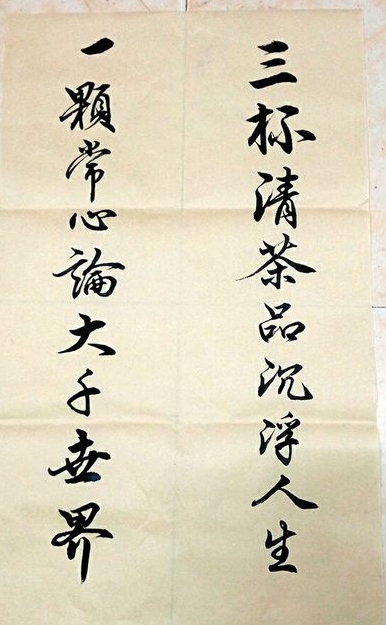 三杯清茶品沉浮人生
一顆常心論大千世界